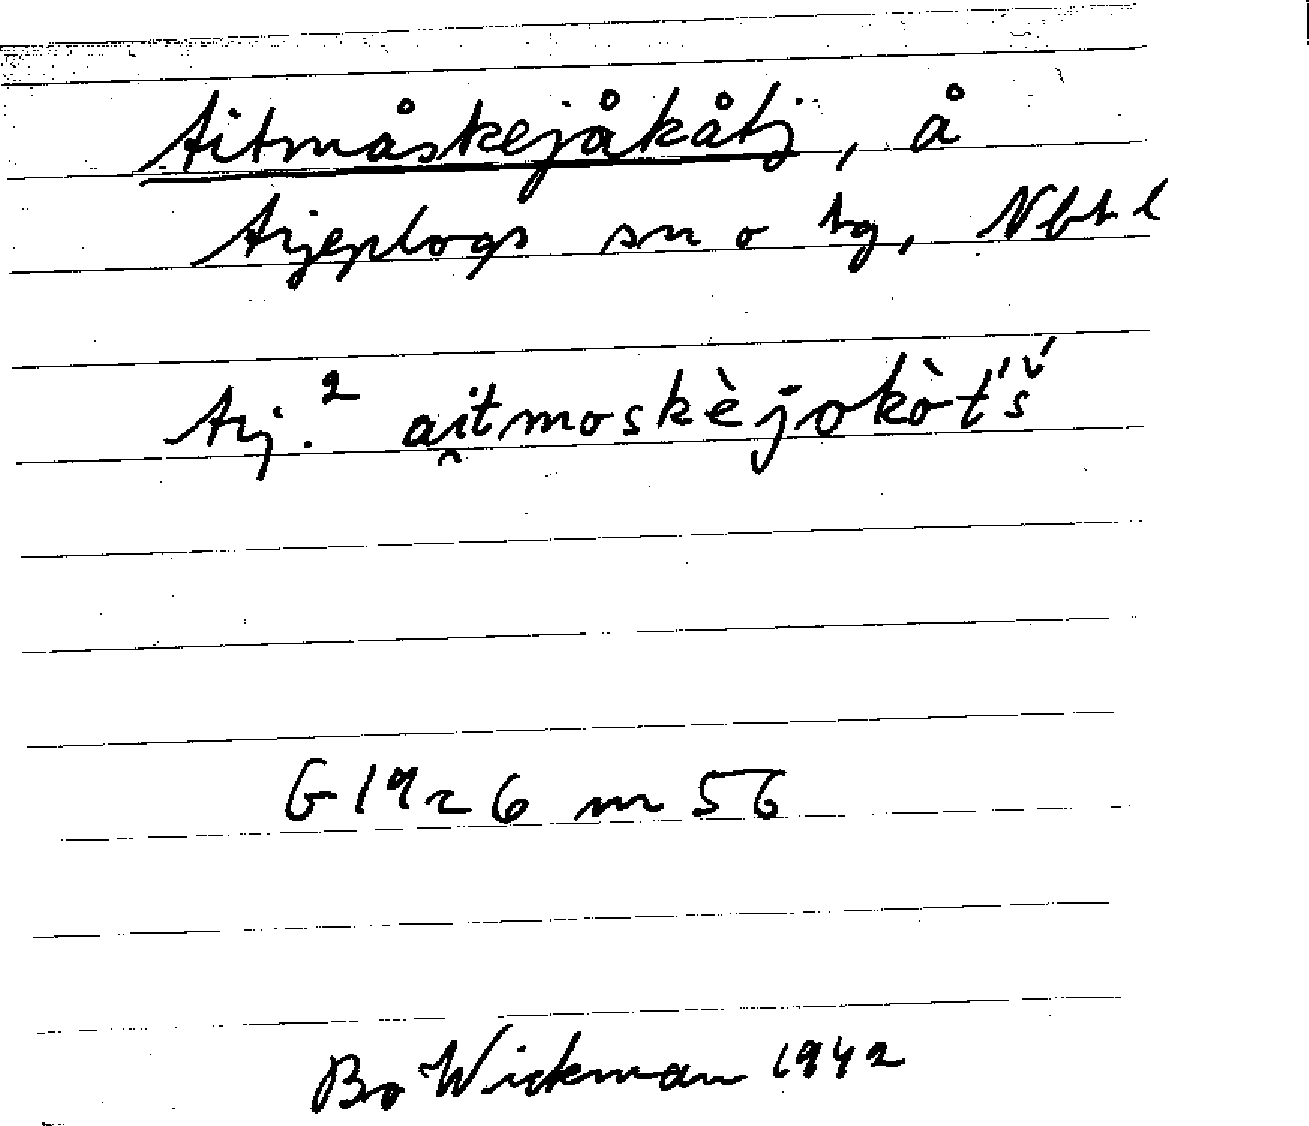 Aitmåskejåkåtj, å
Arjeplogs sn o tg, Nbt. l
Arj.² ai̯tmoskèjokòt́š́
G 1926 m 56
Bo Wickman 1942